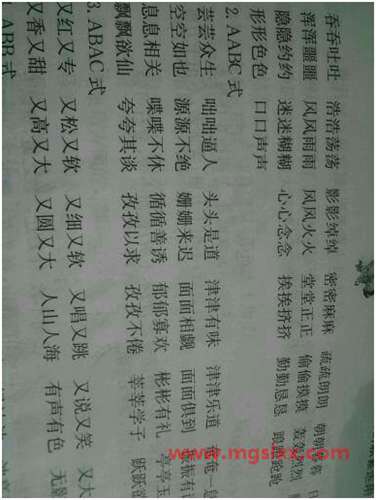 吞吞吐吐 浩浩荡荡 影影绰绰 密密麻麻 疏疏朗朗 朝朝暮暮
浑浑噩噩 风风雨雨 风风火火 堂堂正正 偷偷摸摸 轰轰烈烈
隐隐约约 迷迷糊糊 心心念念 挨挨挤挤 勤勤恳恳
形形色色 口口声声
2. AABC 式
芸芸众生 咄咄逼人 头头是道 津津有味 津津乐道 奄奄一息
空空如也 源源不绝 姗姗来迟 面面相觑 面面俱到 振振有
息息相关 喋喋不休 循循善诱 郁郁寡欢 彬彬有礼 亭亭玉
飘飘欲仙 夸夸其谈 孜孜以求 孜孜不倦 莘莘学子 跃跃欲
3. ABAC 式
又红又专 又松又软 又细又软 又唱又跳 又说又笑 又大
又香又甜 又高又大 又圆又大 人山人海 有声有色 无影
ABB 式
www.mgslxx.com